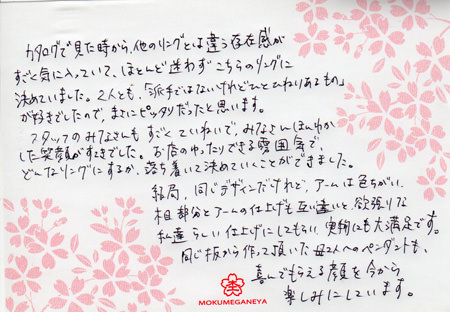 カタログで見た時から、他のリングとは違う存在感が
すごく気に入っていて、ほとんど迷わずこちらのリングに
決めていました。2人とも、「派手ではないけれどひとひねりあるもの」
が好きでしたので、まさにピッタリだったと思います。
スタッフのみなさんもすごくていねいで、みなさんほんわか
した笑顔がすてきでした。お店のゆったりできる雰囲気で、
どんなリングにするか、落ち着いて決めていくことができました。
結局、同じデザインだけれど、アームは色ちがい、
杢目部分とアームの仕上げも互い違いと、欲張りな
私達らしい仕上げにしてもらい、実物にも大満足です。
同じ板から作って頂いた母2人へのペンダントも、
喜んでもらえる顔を今から
楽しみにしています。
MOKUMEGANEYA